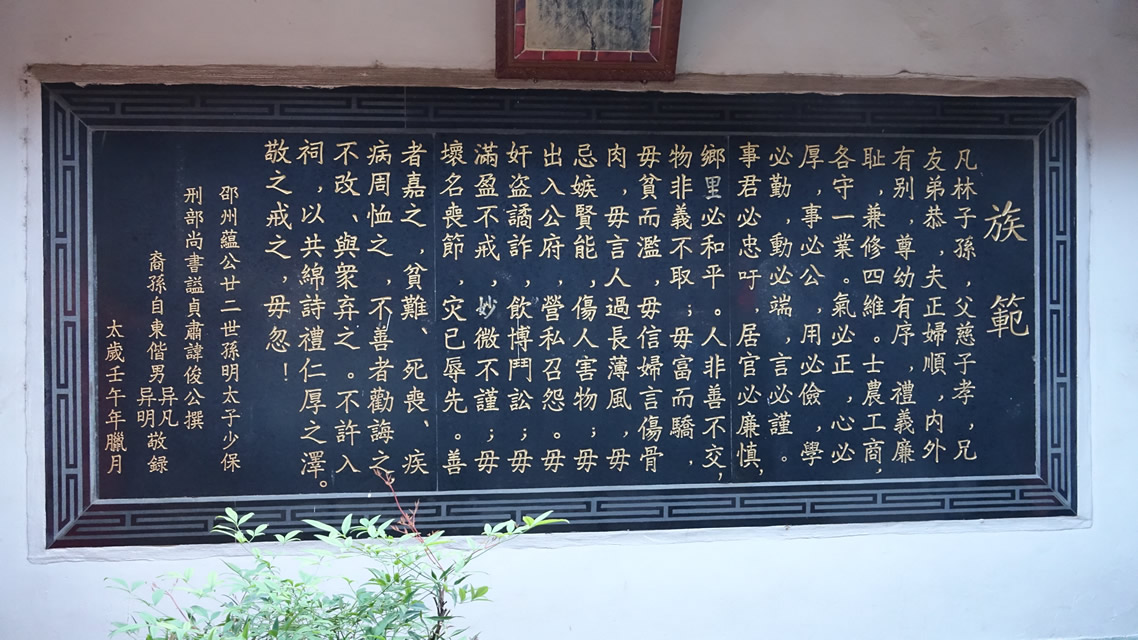 族範
凡林子孫，父慈子孝，兄
友弟恭，夫正婦順，内外
有别，尊幼有序，禮義廉
耻，兼修四維。士農工商，
各守一業。氣必正，心必
厚，事必公，用必儉，學
必勤，動必端，言必謹。
事君必忠吁，居官必廉慎，
鄉里必和平。人非善不交，
物非義不取；毋富而驕，
毋貧而濫，毋信婦言傷骨
肉，毋言人過長薄風，毋
忌嫉賢能，傷人害物；毋
出入公府，營私召怨。毋
奸盗譎詐，飲博鬥訟；毋
滿盈不戒，妙微不謹；毋
壞名喪節，灾已辱先。善
者嘉之，貧難、死喪、疾
病周恤之，不善者勸誨之
不改、與衆弃之。不許入
祠，以共綿詩禮仁厚之澤。
敬之戒之，毋忽！
邵州蘊公廿二世孫明太子少保
刑部尚書謚貞肅諱俊公撰
裔孫自東偕男异凡异明敬録
太歲壬午年臘月